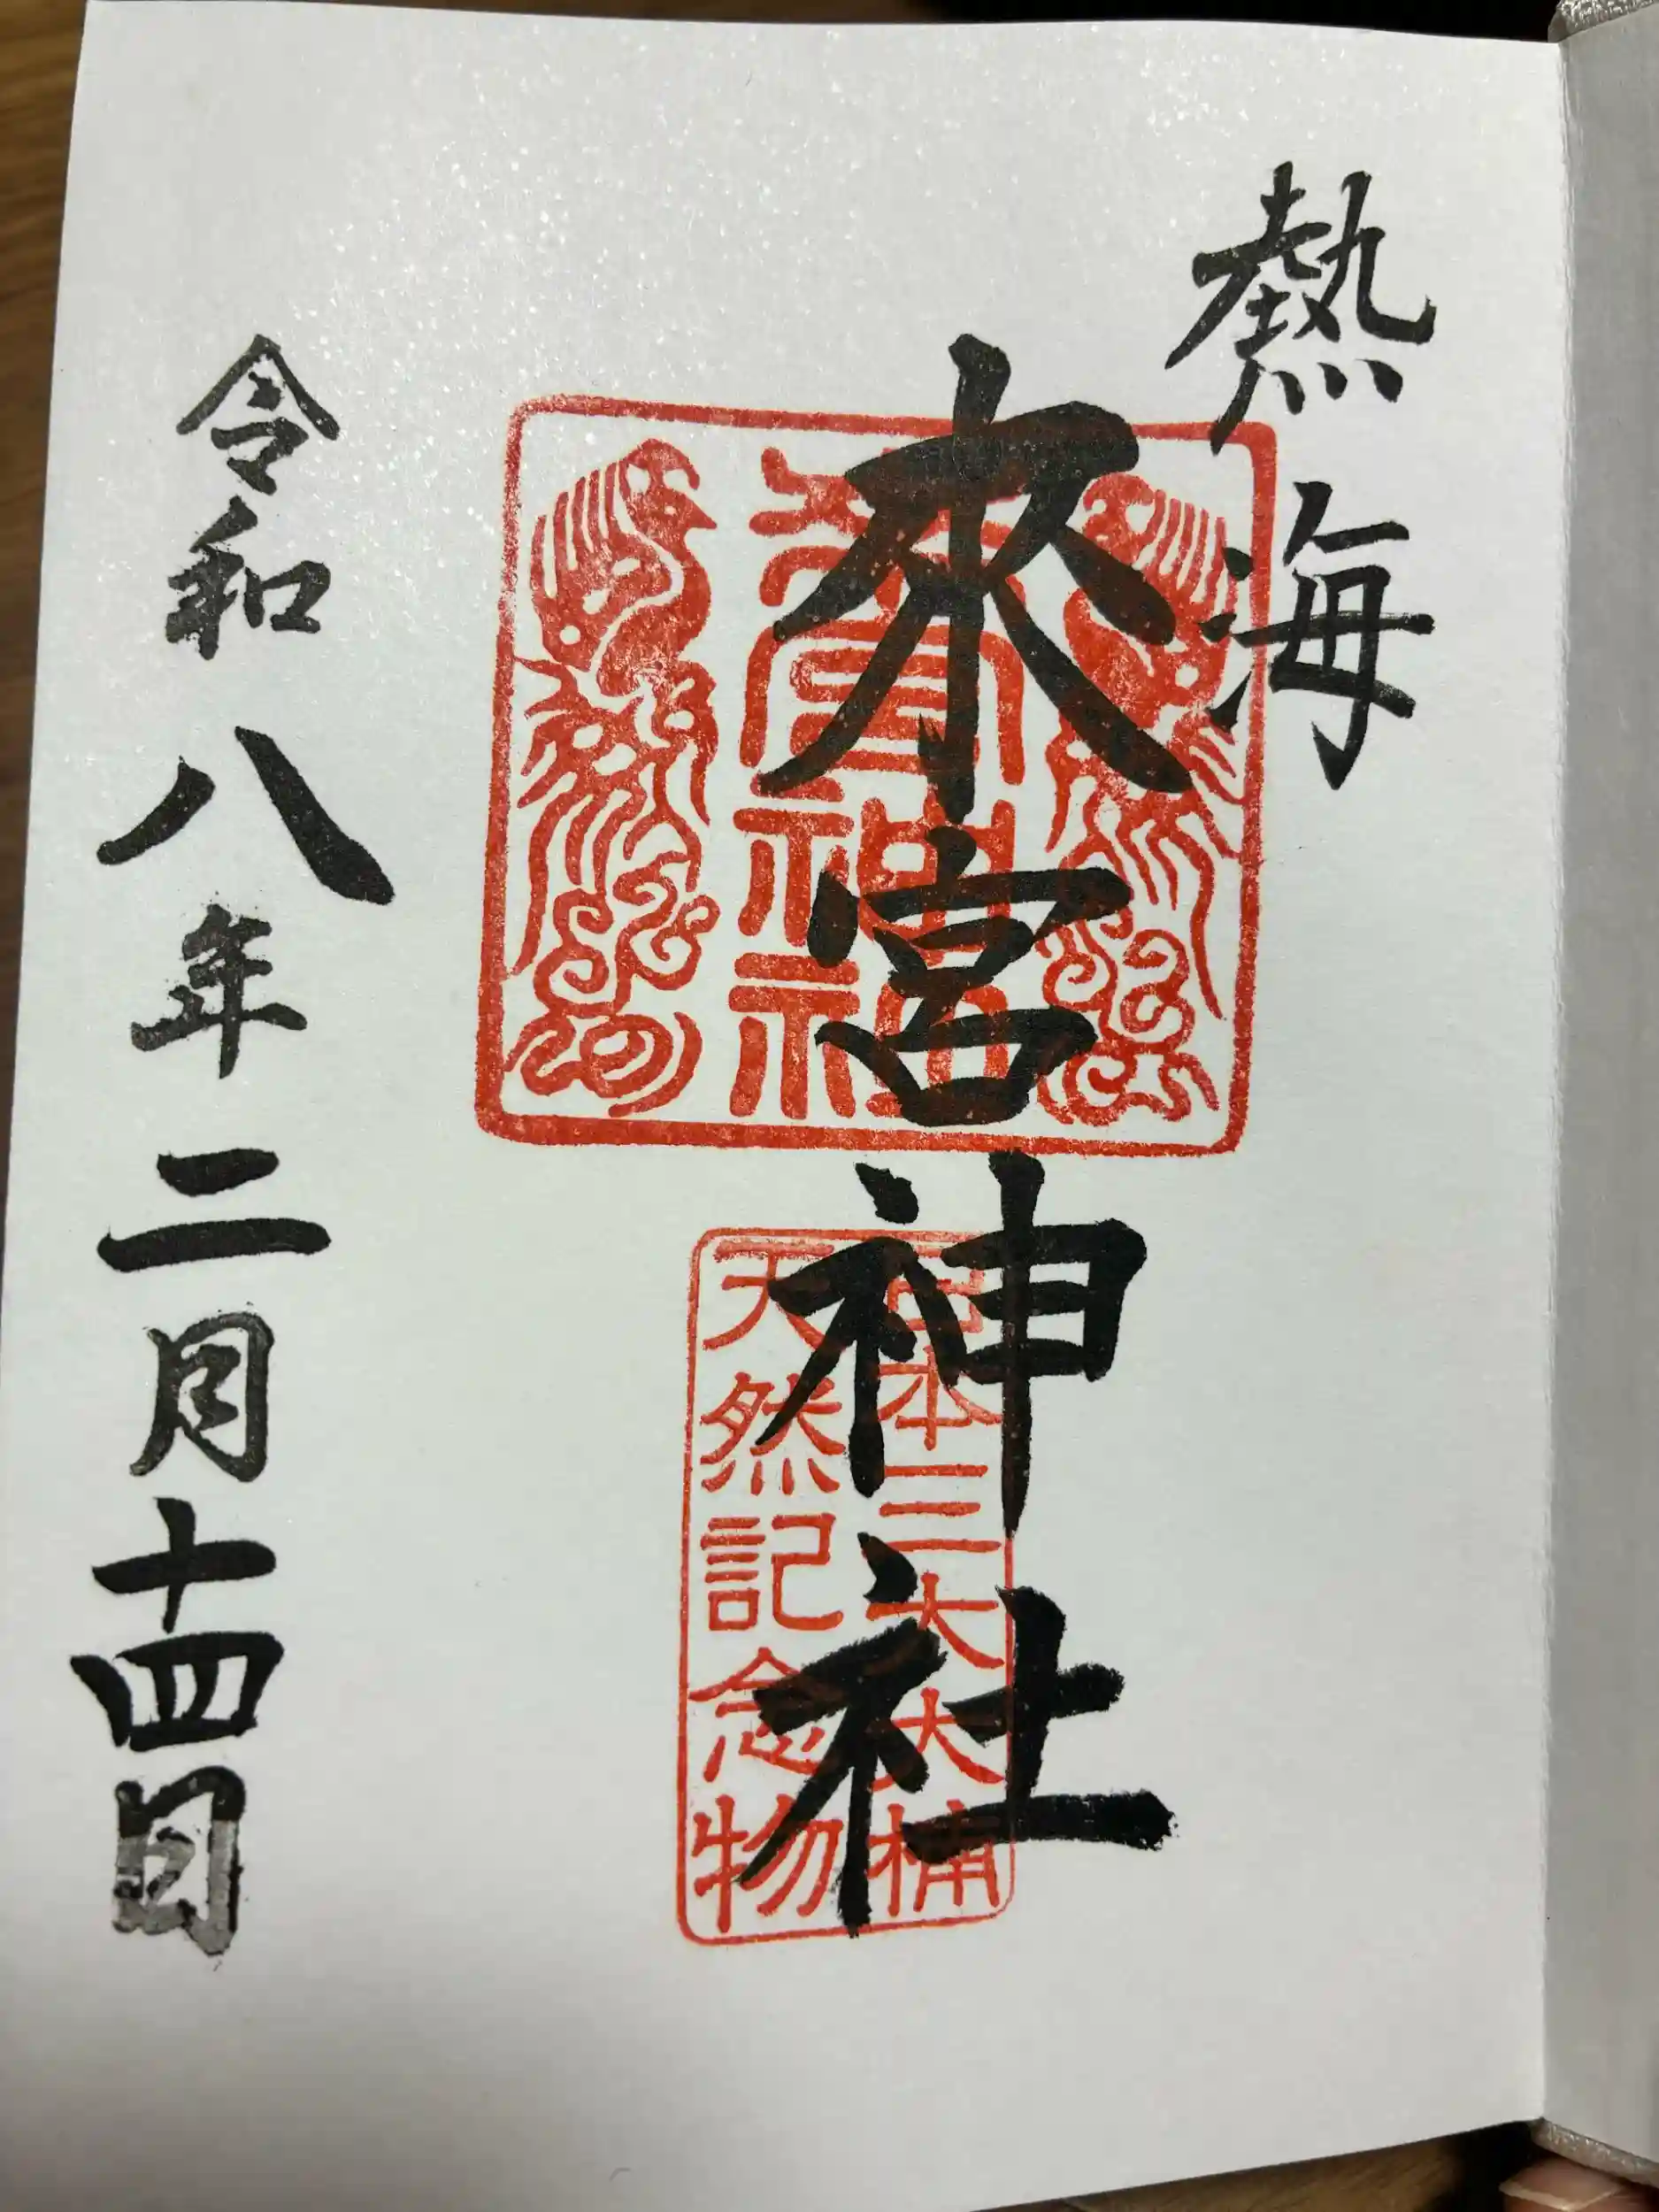 熱海
來宮神社
來宮神社
日本三大大楠
天然記念物
令和八年二月十四日